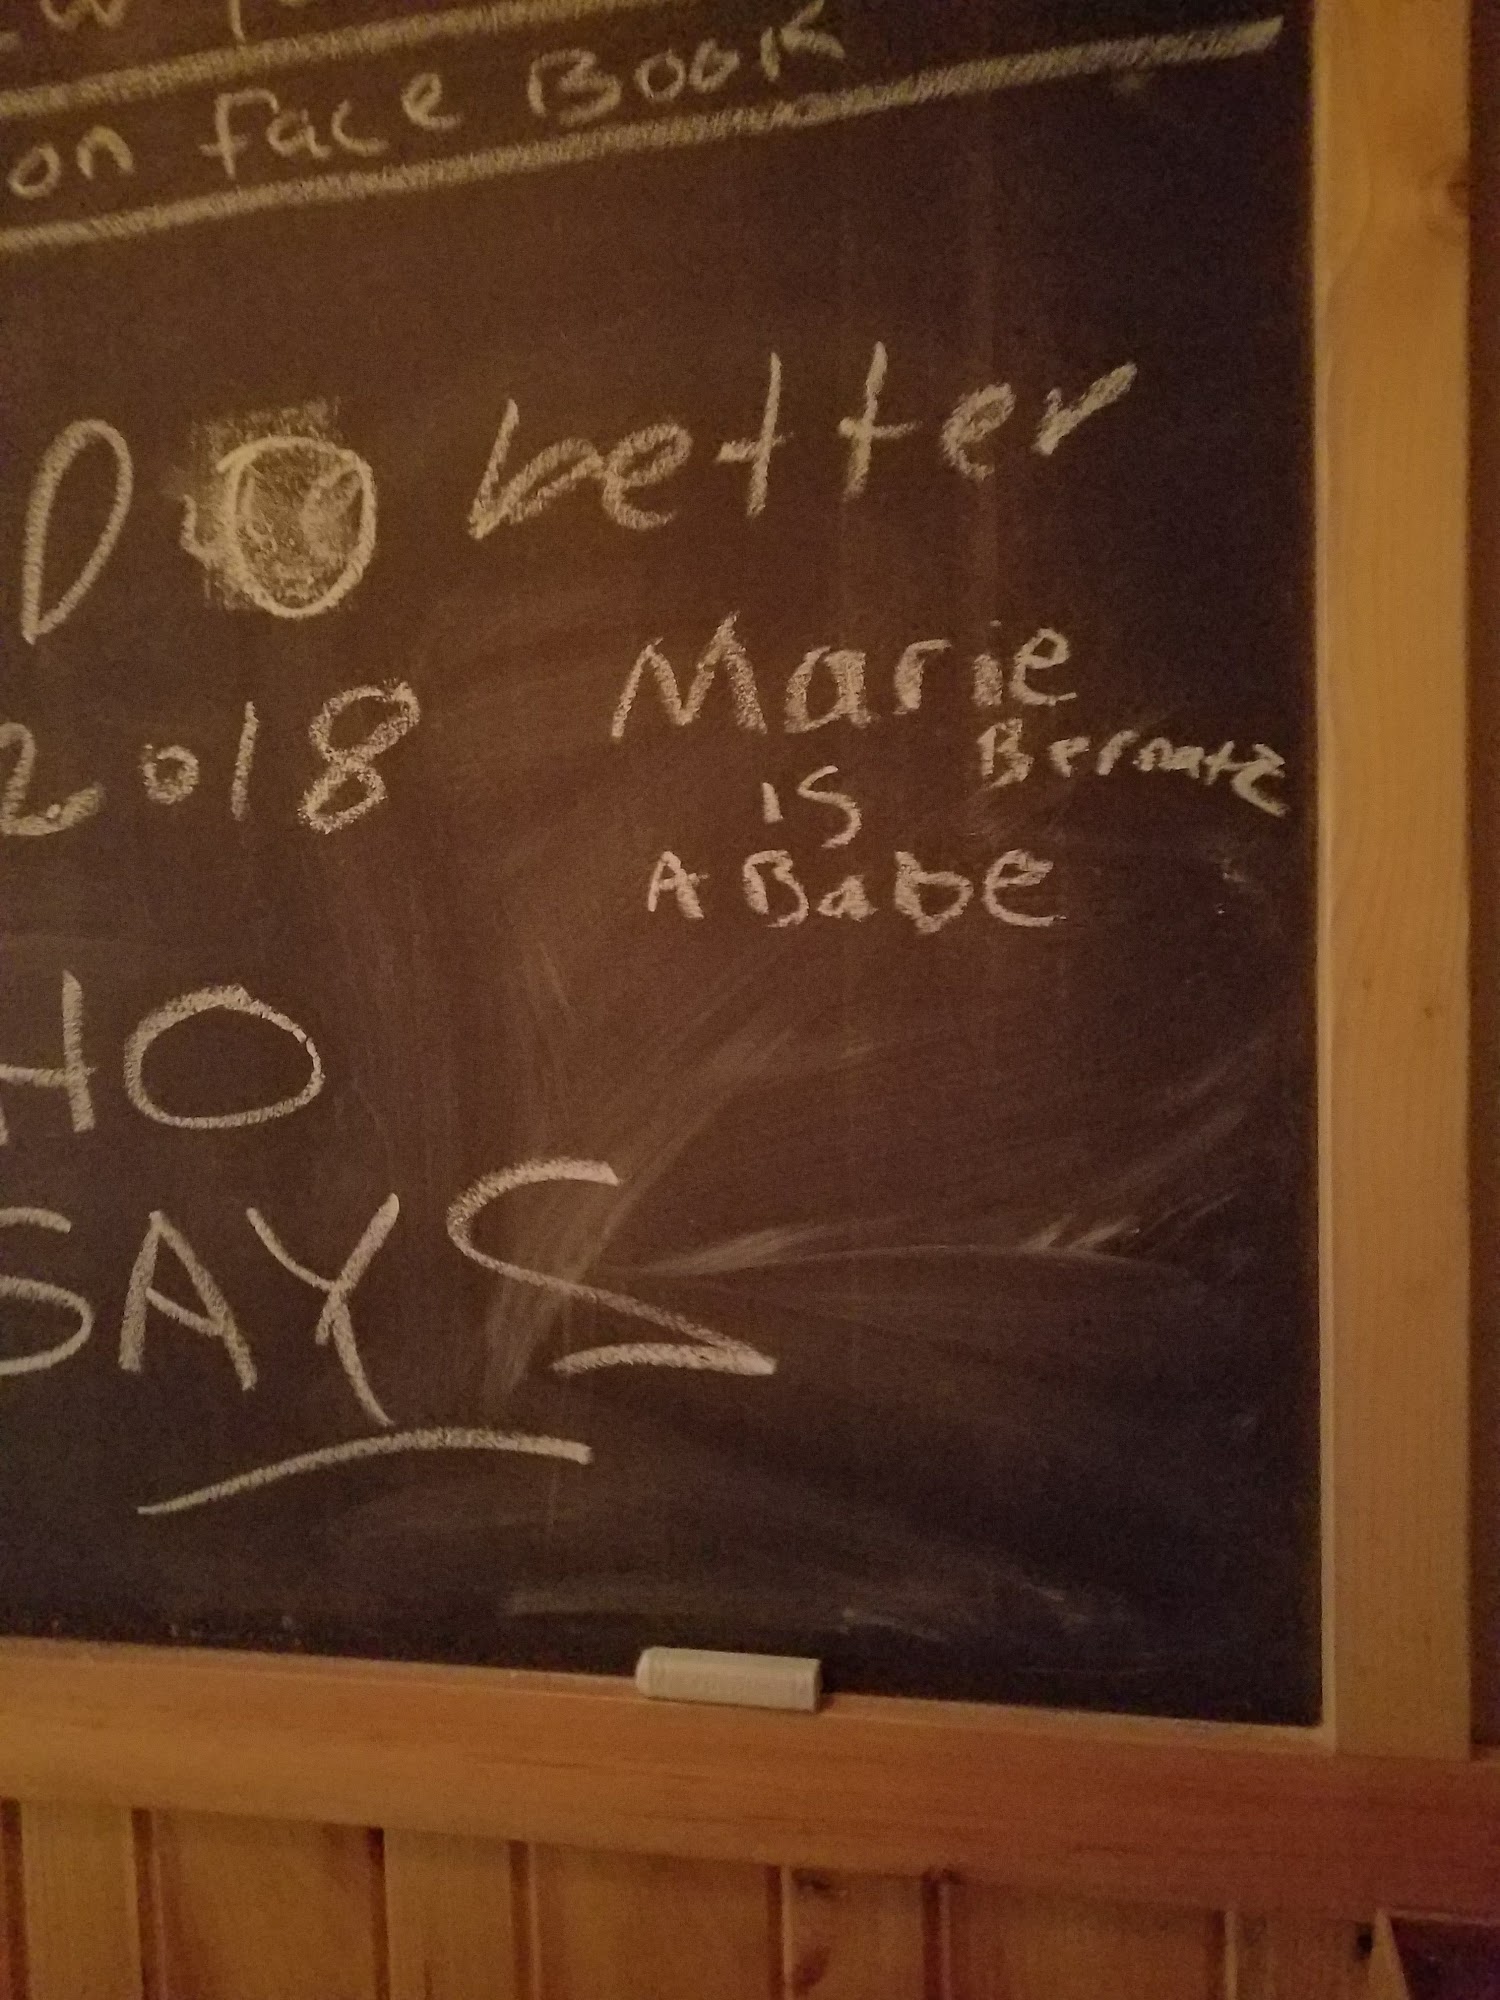 on face Book
DO better
2018
Marie
Bernatz
is
A Babe
HO
SAYS